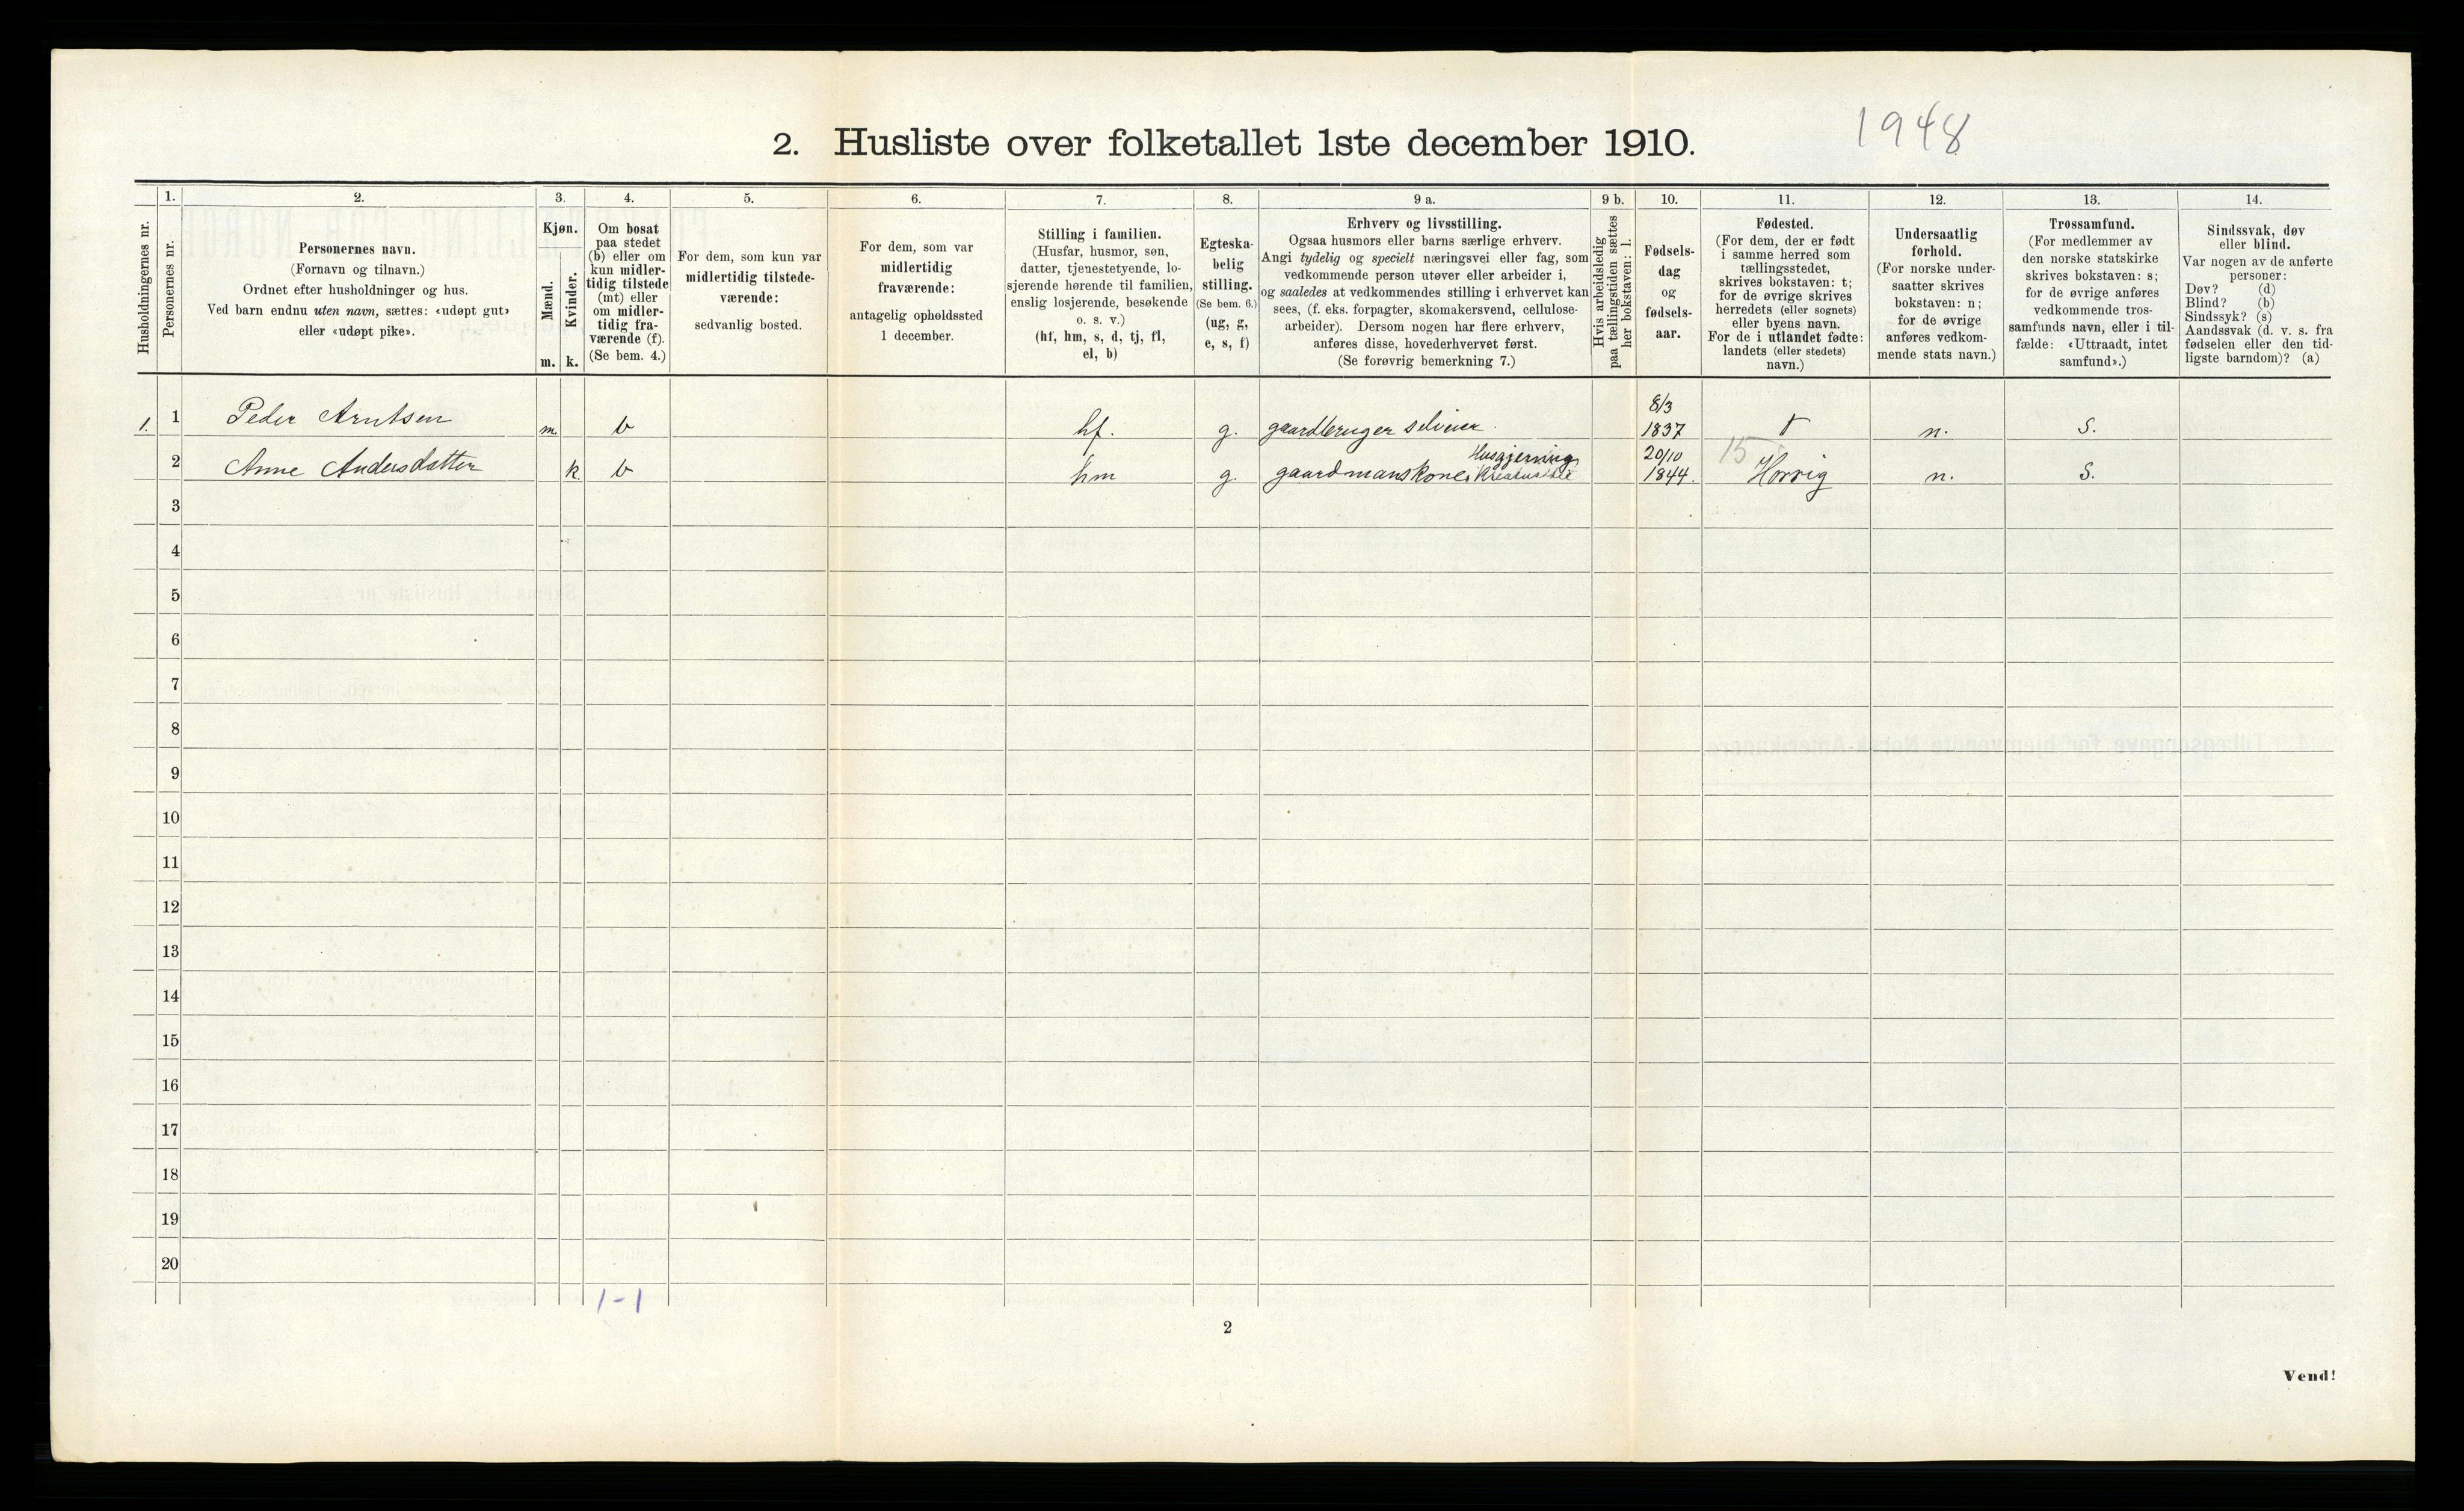 1948
2. Husliste over folketallet 1ste december 1910.
Husholdningernes nr.
1.
Personernes nr.
2.
Personernes navn.
(Fornavn og tilnavn.)
Ordnet efter husholdninger og hus.
Ved barn endnu uten navn, sættes: «udøpt gut»
eller «udøpt pike».
3.
Kjøn.
Mænd.
Kvinder.
m. k.
4.
Om bosat
paa stedet
(b) eller om
kun midler-
tidig tilstede
(mt) eller
om midler-
tidig fra-
værende (f).
(Se bem. 4.)
5.
For dem, som kun var
midlertidig tilstede-
værende:
sedvanlig bosted.
6.
For dem, som var
midlertidig
fraværende:
antagelig opholdssted
1 december.
7.
Stilling i familien.
(Husfar, husmor, søn,
datter, tjenestetyende, lo-
sjerende hørende til familien,
enslig losjerende, besøkende
o. s. v.)
(hf, hm, s, d, tj, fl,
el, b)
8.
Egteska-
belig
stilling.
(Se bem. 6.)
(ug, g,
e, s, f)
9 a.
Erhverv og livsstilling.
Ogsaa husmors eller barns særlige erhverv.
Angi tydelig og specielt næringsvei eller fag, som
vedkommende person utøver eller arbeider i,
og saaledes at vedkommendes stilling i erhvervet kan
sees, (f. eks. forpagter, skomakersvend, cellulose-
arbeider). Dersom nogen har flere erhverv,
anføres disse, hovederhvervet først.
(Se forøvrig bemerkning 7.)
9 b.
Hvis arbeidsledig
paa tællingstiden sættes
her bokstaven: l.
10.
Fødsels-
dag
og
fødsels-
aar.
11.
Fødested.
(For dem, der er født
i samme herred som
tællingsstedet,
skrives bokstaven: t;
for de øvrige skrives
herredets (eller sognets)
eller byens navn.
For de i utlandet fødte:
landets (eller stedets)
navn.)
12.
Undersaatlig
forhold.
(For norske under-
saatter skrives
bokstaven: n;
for de øvrige
anføres vedkom-
mende stats navn.)
13.
Trossamfund.
(For medlemmer av
den norske statskirke
skrives bokstaven: s;
for de øvrige anføres
vedkommende tros-
samfunds navn, eller i til-
fælde: «Uttraadt, intet
samfund».)
14.
Sindssvak, døv
eller blind.
Var nogen av de anførte
personer:
Døv? (d)
Blind? (b)
Sindssyk? (s)
Aandssvak (d. v. s. fra
fødselen eller den tid-
ligste barndom)? (a)
1. 1 Peder Arntsen m. b hf. g. gaardbruger selveier. 8/3 1837 t n. S.
2 Anne Andersdatter k. b hm g. gaardmanskone Husgjerning 20/10 1844. 15 n. S.
3
4
5
6
7
8
9
10
11
12
13
14
15
16
17
18
19
20
1-1
2
Vend!